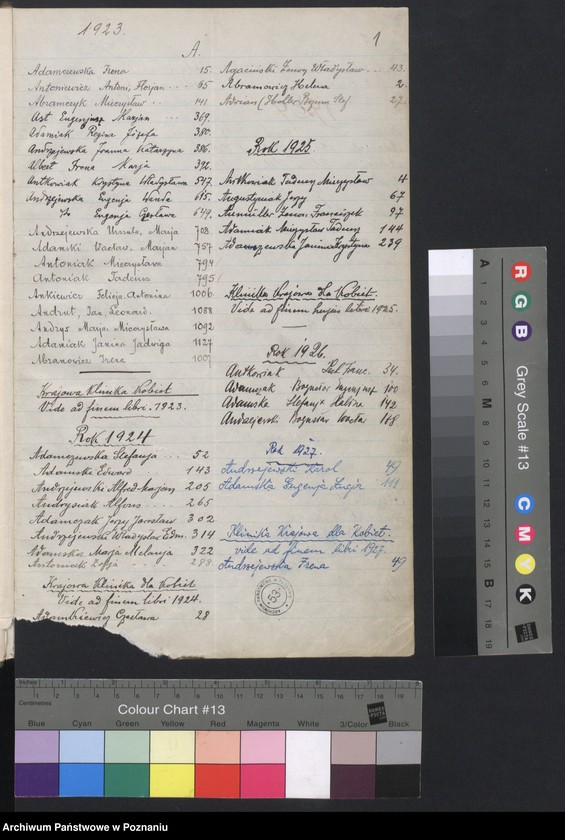 1923.
1
A.
Adamczewska Irena 15.
Antoniewicz Antoni, Florjan 65
Abramczyk Mieczysław 141
Ast Eugenjusz Marjan 369.
Adamiak Regina Józefa 380.
Andrzejewska Joanna Katarzyna 386.
Albest Irena Marja 392.
Antkowiak Krystyna Władysława 547.
Andrzejewska Eugenja Wanda 615.
Eugenja Czesława 649.
Andrzejewska Urszula, Marja 708.
Adamski Wacław, Marjan 757
Antoniak Mieczysława 794
Antoniak Tadeusz 795
Ankiewicz Felicja, Antonina 1006
Andrut, Jan, Leonard. 1088
Andrys Marja, Mieczysława 1092
Adamiak Janina Jadwiga 1127
Abranowicz Irena
Krajowa Klinika Kobiet
Vide ad finem libri. 1923.
Rok 1924
Adamczewska Stefanja 52
Adamska Edward 143
Andrzejewski Alfred Marjan 205
Andrysiak Alfons 265
Adamczak Jerzy Jarosław 302
Andrzejewski Władysław Edm. 314
Adamska Marja Melanja 322
Antoniak Zofja 288
Krajowa Klinika dla Kobiet
Vide ad finem libri 1924.
Adamkiewicz Czesława 28
Agaciński Władysław 43.
Abramowicz Helena 2.
Adrian 27.
Rok 1925
Antkowiak Tadeusz Mieczysław 4
Augustyniak Jerzy 67
Franciszek 97
Adamiak Mieczysław Tadeusz 144
Adamszewska Janina Krystyna 239
Klinika Krajowa dla Kobiet.
Vide ad finem hujus libri 1925.
Rok 1926.
Antkowiak Paul Franc. 34.
Adamczak Bogusław 100
Adamska Stefanja 142
Andrzejewski Bogusław 188
Rok 1927.
Andrzejewski Karol 49
Adamska Eugenja Łucja 111
Klinika Krajowa dla Kobiet.
vide ad finem libri 1927.
Andrzejewska Irena 49
53
Inches
Centimetres
Colour Chart #13
Blue Cyan Green Yellow Red Magenta White 3/Color Black
Grey Scale #13
R
G
B
C
M
Y
K
A 1 2 3 4 5 6 M 8 9 10 11 12 13 14 15 B 17 18 19
Archiwum Państwowe w Poznaniu